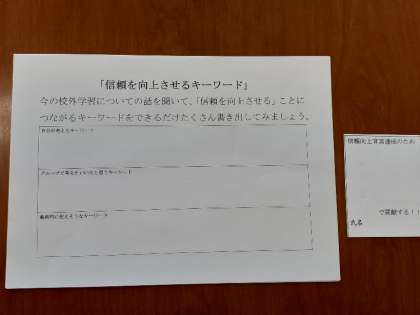 「信頼を向上させるキーワード」
今の校外学習についての話を聞いて、「信頼を向上させる」ことに
つながるキーワードをできるだけたくさん書き出してみましょう。
自分が考えるキーワード
グループで考えた
と思うキーワード
キーワード
信頼向上宣言達成のため
で貢献する！
氏名